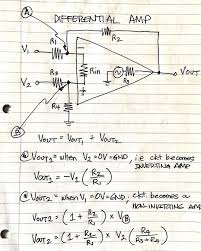 A
DIFFERENTIAL AMP
R2
V1
R1
V2
R3
Rin
R0
VOUT
R4
B
VOUT = VOUT1 + VOUT2
VOUT1 = when V2 = 0V = GND, i.e ckt becomes
INVERTING AMP
VOUT1 = -V1 (R2/R1)
VOUT2 = when V1 = 0V = GND, ckt becomes a
NON-INVERTING AMP
VOUT2 = (1 + R2/R1) × VB
VOUT2 = (1 + R2/R1) × V2 (R4/R3+R4)